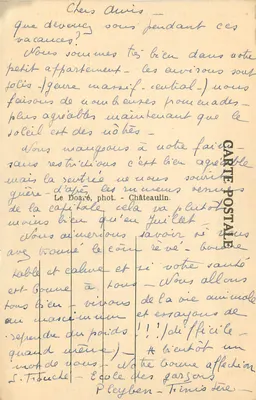 Chers Amis -
que devenez vous pendant ces
vacances?
Nous sommes très bien dans notre
petit appartement - les environs sont
jolis - (genre massif-central -) nous
faisons de nombreuses promenades -
plus agréables maintenant que le
soleil est des nôtres -
Nous mangeons à notre faim -
sans restrictions c'est bien agréable
mais la rentrée ne nous sourit
guère - d'après les rumeurs venues
de la capitale cela va plutôt
moins bien qu'en Juillet -
Nous aimerions savoir si vous
avez trouvé le coin rêvé - bonne
table et calme et si votre santé
est bonne à tous - Nous allons
tous bien - vivons de la vie animale
au maximum et essayons de
reprendre du poids !!! (difficile
quand même) - A bientôt un
mot de vous - Notre bonne affection
Ecole des garçons
Pleyben - Finistère -
CARTE POSTALE
Le Doaré, phot. - Châteaulin.